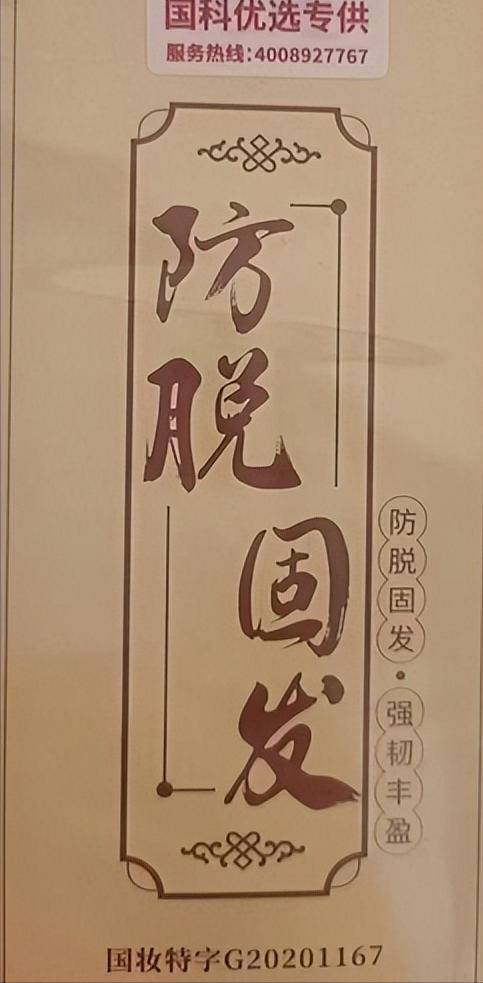 国科优选专供
服务热线:4008927767
防脱
固发
防脱固发·强韧丰盈
国妆特字G20201167